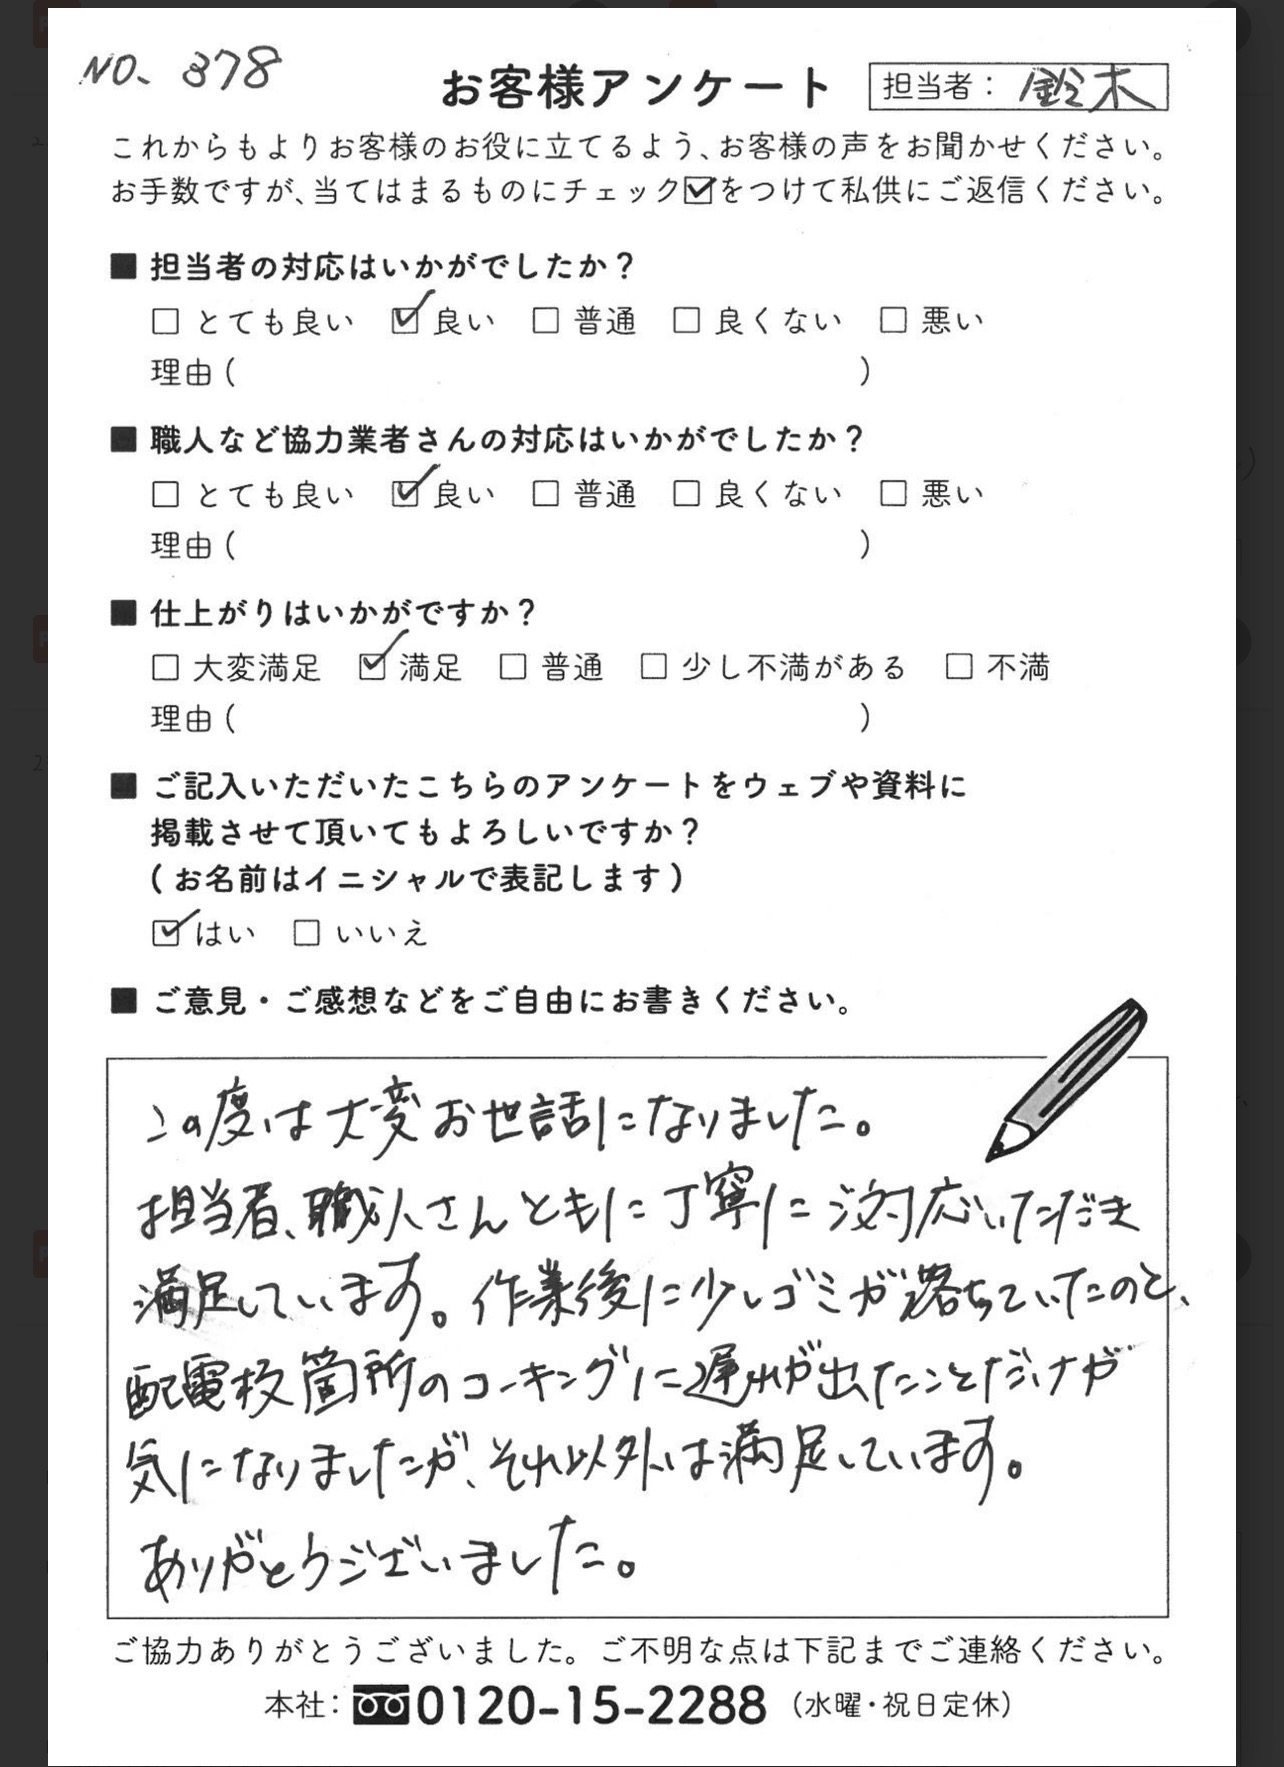 NO. 378
お客様アンケート
担当者： 鈴木
これからもよりお客様のお役に立てるよう、お客様の声をお聞かせください。
お手数ですが、当てはまるものにチェック☑をつけて私供にご返信ください。
■ 担当者の対応はいかがでしたか？
□ とても良い ☑ 良い □ 普通 □ 良くない □ 悪い
理由（ ）
■ 職人など協力業者さんの対応はいかがでしたか？
□ とても良い ☑ 良い □ 普通 □ 良くない □ 悪い
理由（ ）
■ 仕上がりはいかがですか？
□ 大変満足 ☑ 満足 □ 普通 □ 少し不満がある □ 不満
理由（ ）
■ ご記入いただいたこちらのアンケートをウェブや資料に
掲載させて頂いてもよろしいですか？
（お名前はイニシャルで表記します）
☑ はい □ いいえ
■ ご意見・ご感想などをご自由にお書きください。
この度は大変お世話になりました。
担当者、職人さんともに丁寧にご対応いただき
満足しています。作業後に少しゴミが落ちていたのと、
配電板箇所のコーキングに遅れが出たことだけが
気になりましたが、それ以外は満足しています。
ありがとうございました。
ご協力ありがとうございました。ご不明な点は下記までご連絡ください。
本社：0120-15-2288（水曜・祝日定休）